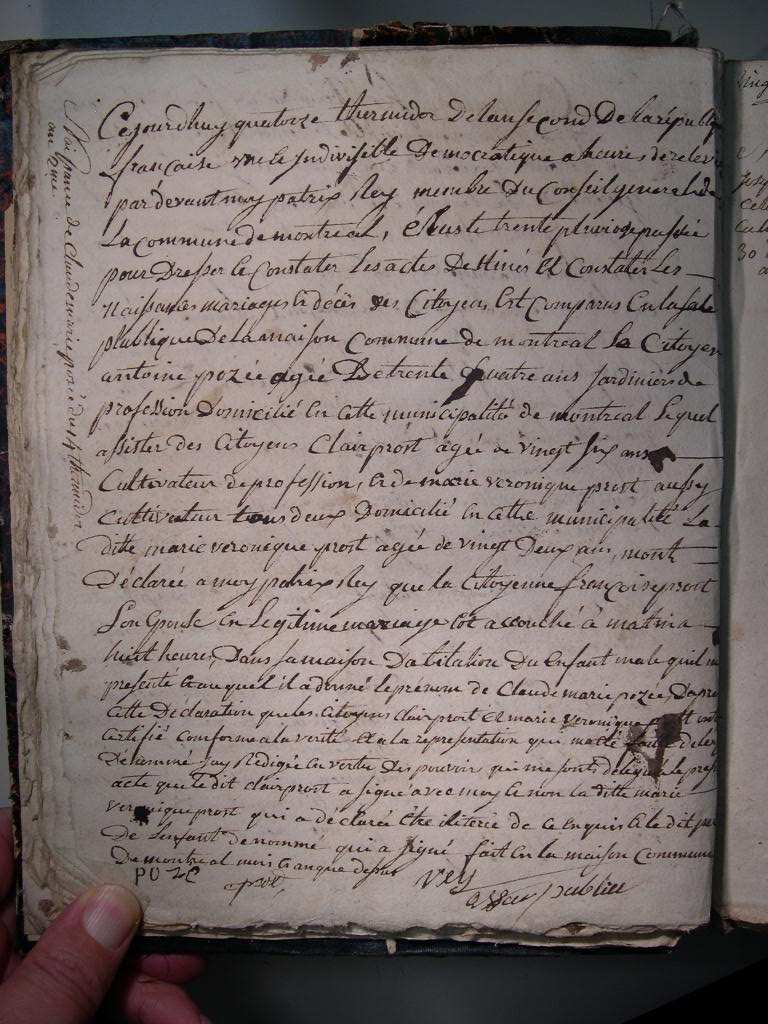 Naissance de Claude marie pozée du 14 thermidor
an 2me
Cejourdhuy quatorze thermidor De lan second De la répu
française une et Indivisible Democratique a heures de relev
par devant moy patrix Rey membre Du Conseil general de
La commune de montreal, élus le trente pluviose passée
pour Dresser le Constater Les actes Destinés Et Constater Les
Naissances mariages et décès des Citoyens Est Comparus En la salle
plublique De la maison Commune de montreal Le Citoyen
antoine pozée agée De trente quatre ans Jardinier de
profession Domicilié En Cette municipalité de montreal Lequel
assister des Citoyens Clair prost agée de vingt six ans
Cultivateur de profession, et de marie veronique prost aussy
Cultivateur tous deux Domicilié en Cette municipalité La
ditte marie veronique prost agée de vingt Deux ans, mont
Déclarée a moy patrix Rey que la Citoyenne françoise prost
Son Epouse En Legitime mariage est accouché à matin a
huit heures, Dans sa maison Dabitation Du Enfant male quil m
presenté Et auquel il a donné le prenom de Claude marie pozée, Dapre
Cette Declaration que les Citoyens clair prost Et marie veronique ont
Certifié Conforme a la verité Et a la representation qui ma été
Denommé Jay Rédigée En vertu Des pouvoir qui me sont délégué le pres
acte que le dit clair prost a signé avec moy Et non la ditte marie
veronique prost qui a declarée être iliterée de ce enquis Et le dit pere
De Lenfant denommé qui a signé fait En la maison Commune
De montreal mois Et an que dessus
POZE prost Rey
publicu